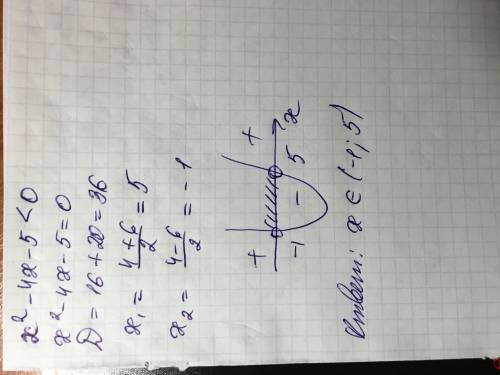 x² - 4x - 5 < 0
x² - 4x - 5 = 0
D = 16 + 20 = 36
x₁ = (4 + 6)/2 = 5
x₂ = (4 - 6)/2 = -1
+ - +
-1 5 x
Ответ: x ∈ (-1; 5)